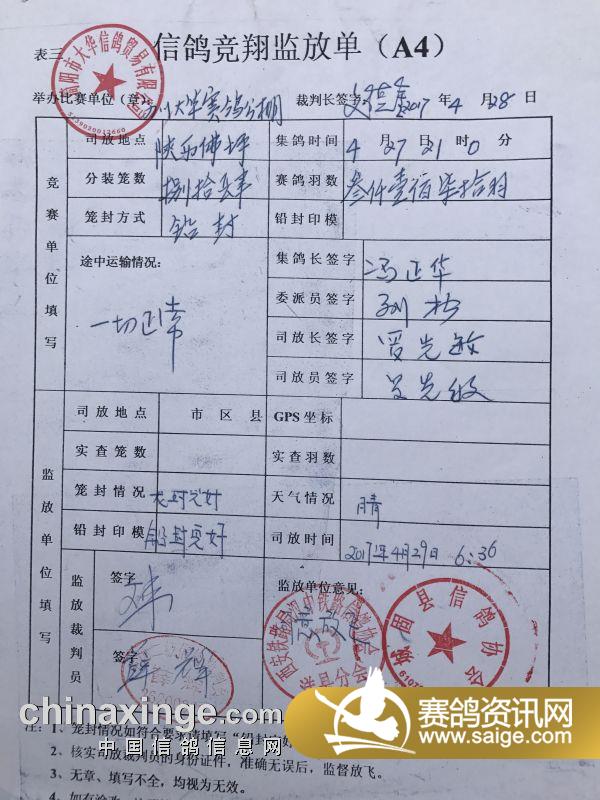 表三
信鸽竞翔监放单（A4）
举办比赛单位（章） 大华赛鸽公棚 裁判长签字 2017 年 4 月 28 日
竞赛单位填写
司放地点 陕西佛坪 集鸽时间 4 月 27 日 21 时 0 分
分装笼数 捌拾 赛鸽羽数 叁仟壹佰柒拾羽
笼封方式 铅封 铅封印模
途中运输情况： 一切正常
集鸽长签字 冯正华
委派员签字
司放长签字
司放员签字
监放单位填写
司放地点 市 区 县 GPS坐标
实查笼数 实查羽数
笼封情况 完好 天气情况 晴
铅封印模 铅封完好 司放时间 2017年4月29日 6:36
监放裁判员
签字
签字
监放单位意见：
市大华信鸽贸易有限公司
洋县分会
城固县信鸽协会
chinaxinge.com
中国信鸽信息网
赛鸽资讯网
www.saige.com
注：1、笼封情况如符合要求请填写“铅封完好
2、核实司放裁判员的身份证件，准确无误后，监督放飞。
3、无章、填写不全，均视为无效。